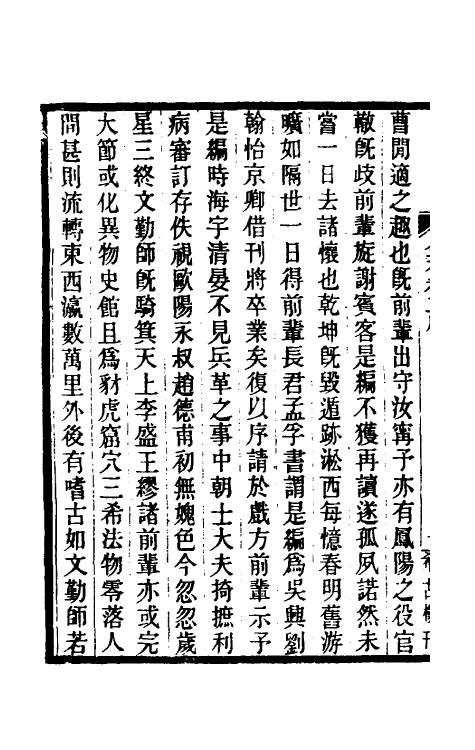 曹閒適之趣也旣前輩出守汝寗予亦有鳳陽之役官
轍旣歧前輩旋謝賓客是編不獲再讀遂孤夙諾然未
嘗一日去諸懷也乾坤旣毀遁跡淞西每憶春明舊游
曠如隔世一日得前輩長君孟孚書謂是編爲吳興劉
翰怡京卿借刊將卒業矣復以序請於戲方前輩示予
是編時海宇清晏不見兵革之事中朝士大夫掎摭利
病審訂存佚視歐陽永叔趙德甫初無媿色今忽忽歲
星三終文勤師旣騎箕天上李盛王繆諸前輩亦或完
大節或化異物史館且爲豺虎窟穴三希法物零落人
間甚則流轉東西瀛數萬里外後有嗜古如文勤師若